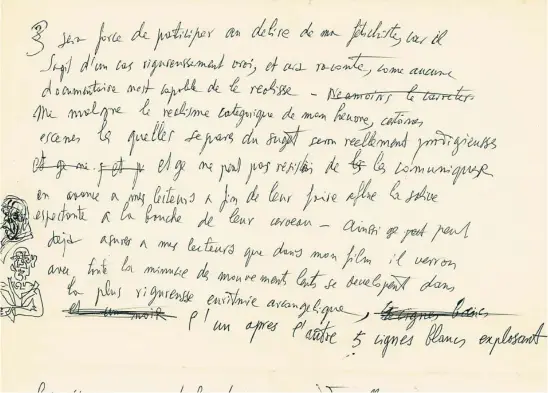 sera force de participer au delire de ma fetichiste, car il
sagit d'un cas rigureussement vrai, et aisi raconte, come aucune
documentaire nest capable de le realisse – Neamoins le caracter
Me malgre le realisme categorique de mon heuvre, certaines
escenes les quelles separes du suget seron reellement prodigieuses
et ge ne et ge ne peut pas resister de les comuniquer
en avance a mes lecteurs a fin de leur faire aflue la salive
espectante a la bouche de leur cerveau – Ainsi ge peut
deja asures a mes lecteurs que dans mon film il verron
avec toute la minucie de mouvements lents se developent dans
la plus rigureusse euritmie arcangelique, cignes blancs
et un noir l'un apres l'autre 5 cignes blancs explosant